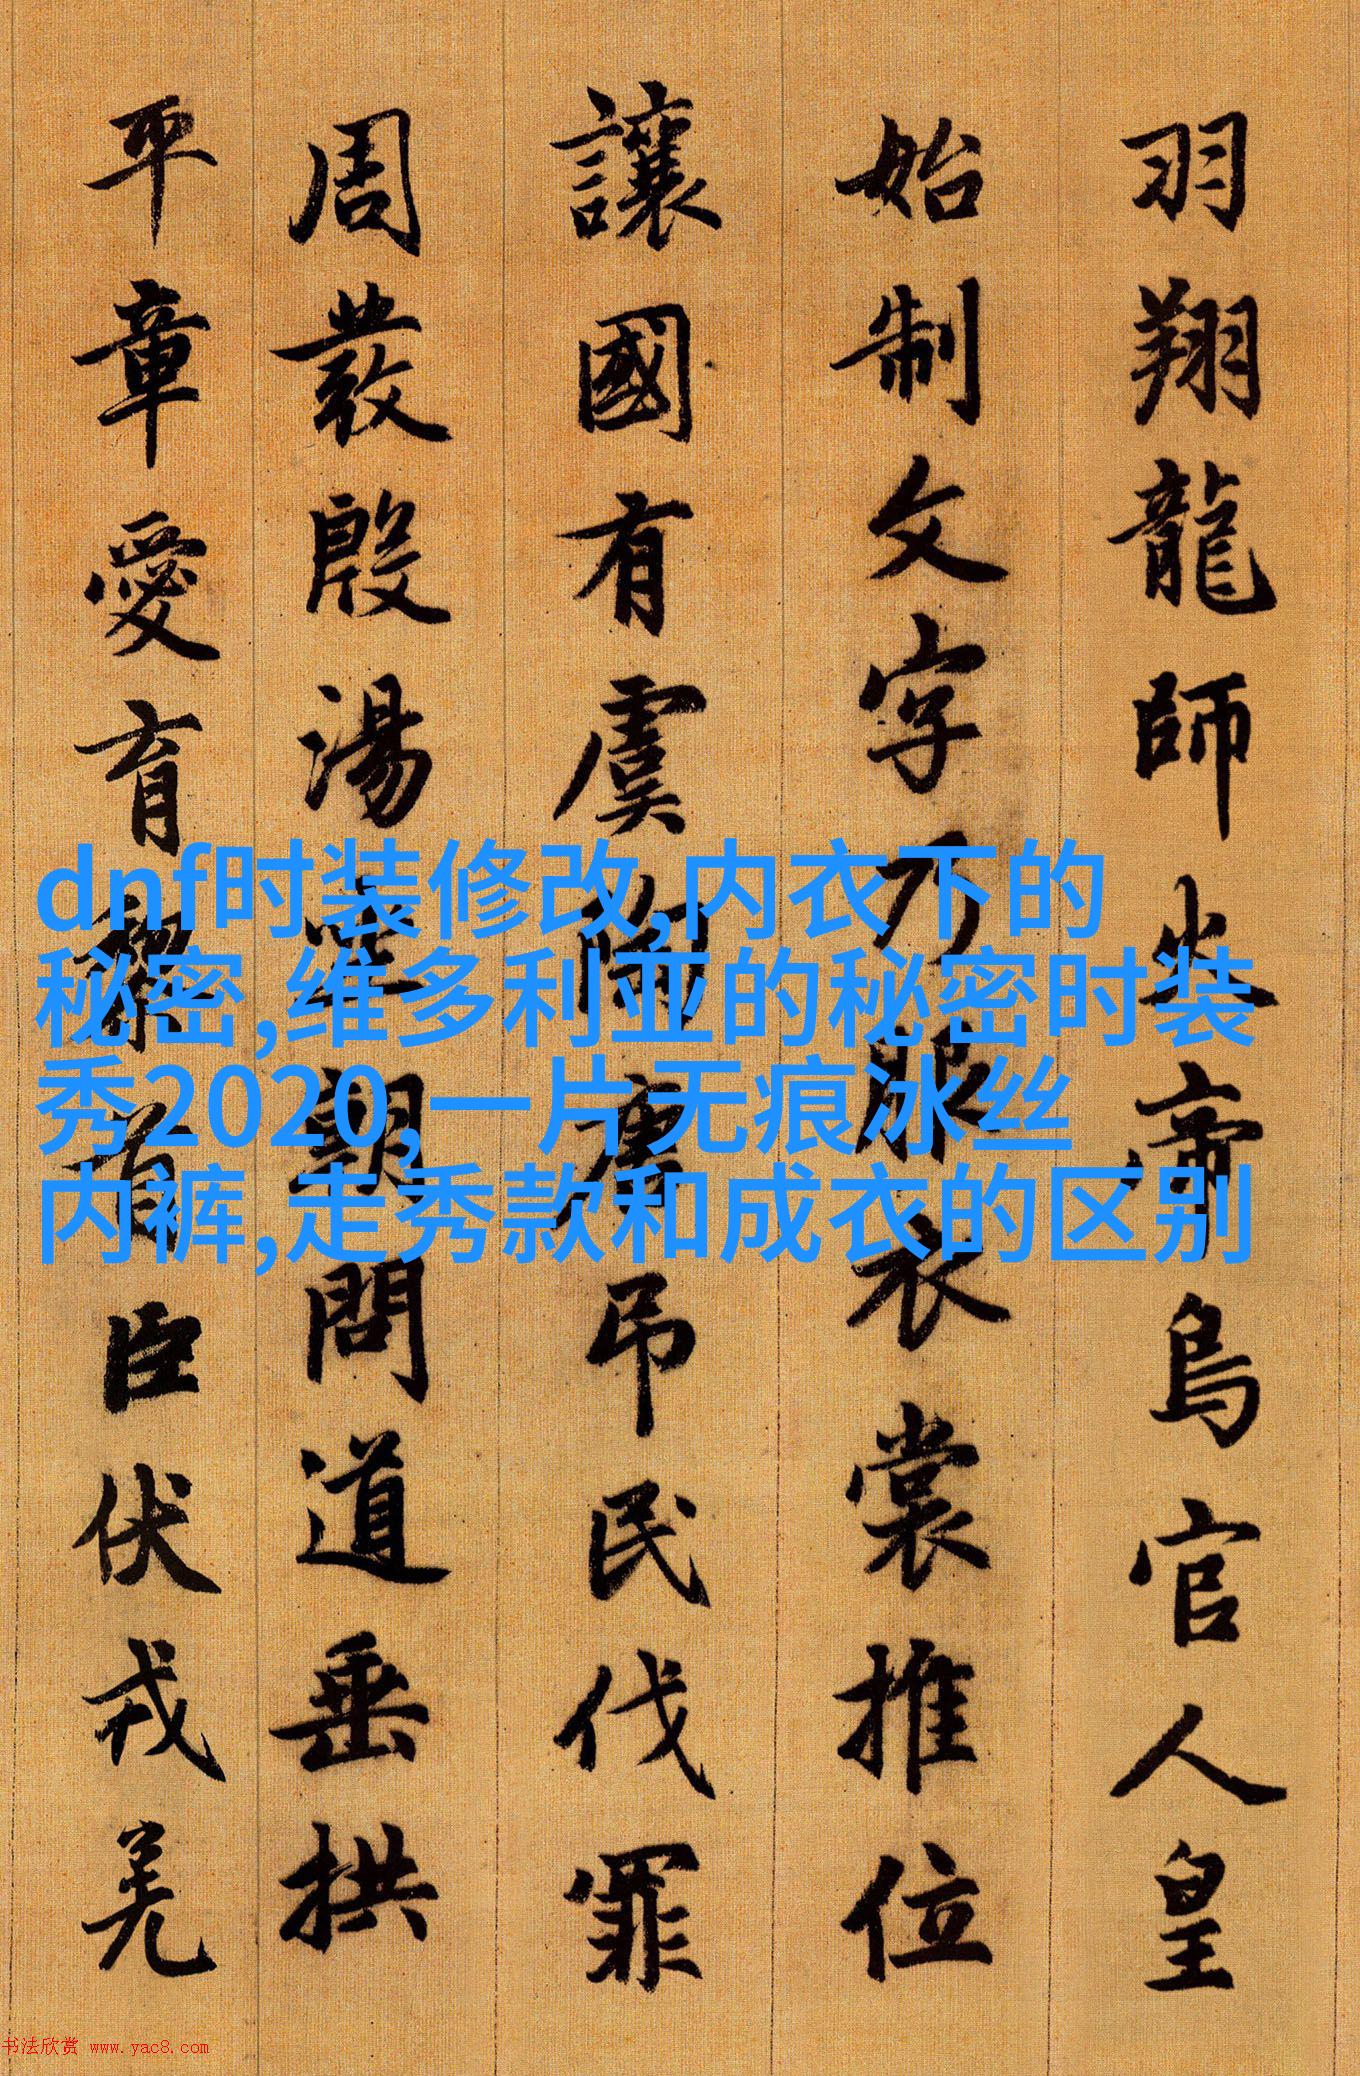 羽翔龍師火帝鳥官人皇
始制文字乃服衣裳推位
讓國有虞陶唐吊民伐罪
周發殷湯坐朝問道垂拱
平章愛育黎首臣伏戎羌
dnf时装修改,内衣下的
秘密,维多利亚的秘密时装
秀2020,一片无痕冰丝
内裤,走秀款和成衣的区别
书法欣赏 www.yac8.com